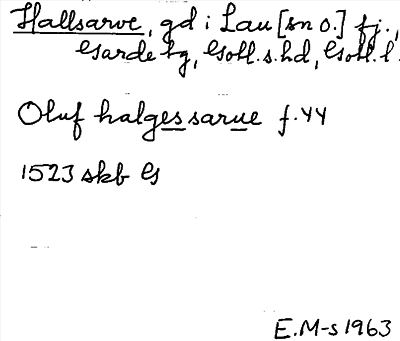 Hallsarve, gd i Lau [sn o.] fj.,
Garde tg, Gotl. s. hd, Gotl. l.
Oluf halgessarue f. 44
1523 skb G
E.M-s 1963